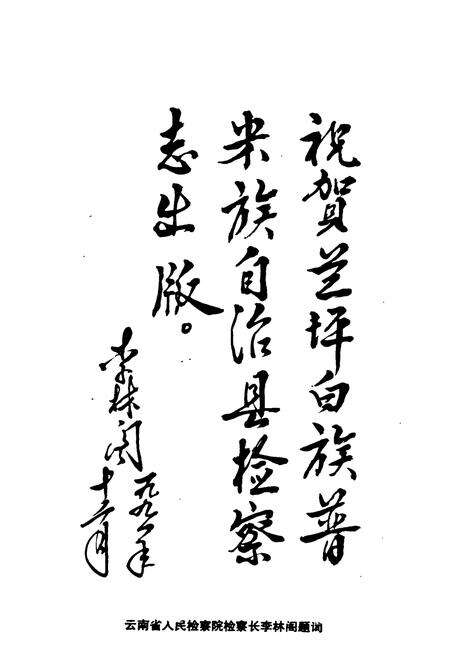 祝贺兰坪白族普
米族自治县检察
志出版。
李林阁
一九九一年
十二月
云南省人民检察院检察长李林阁题词